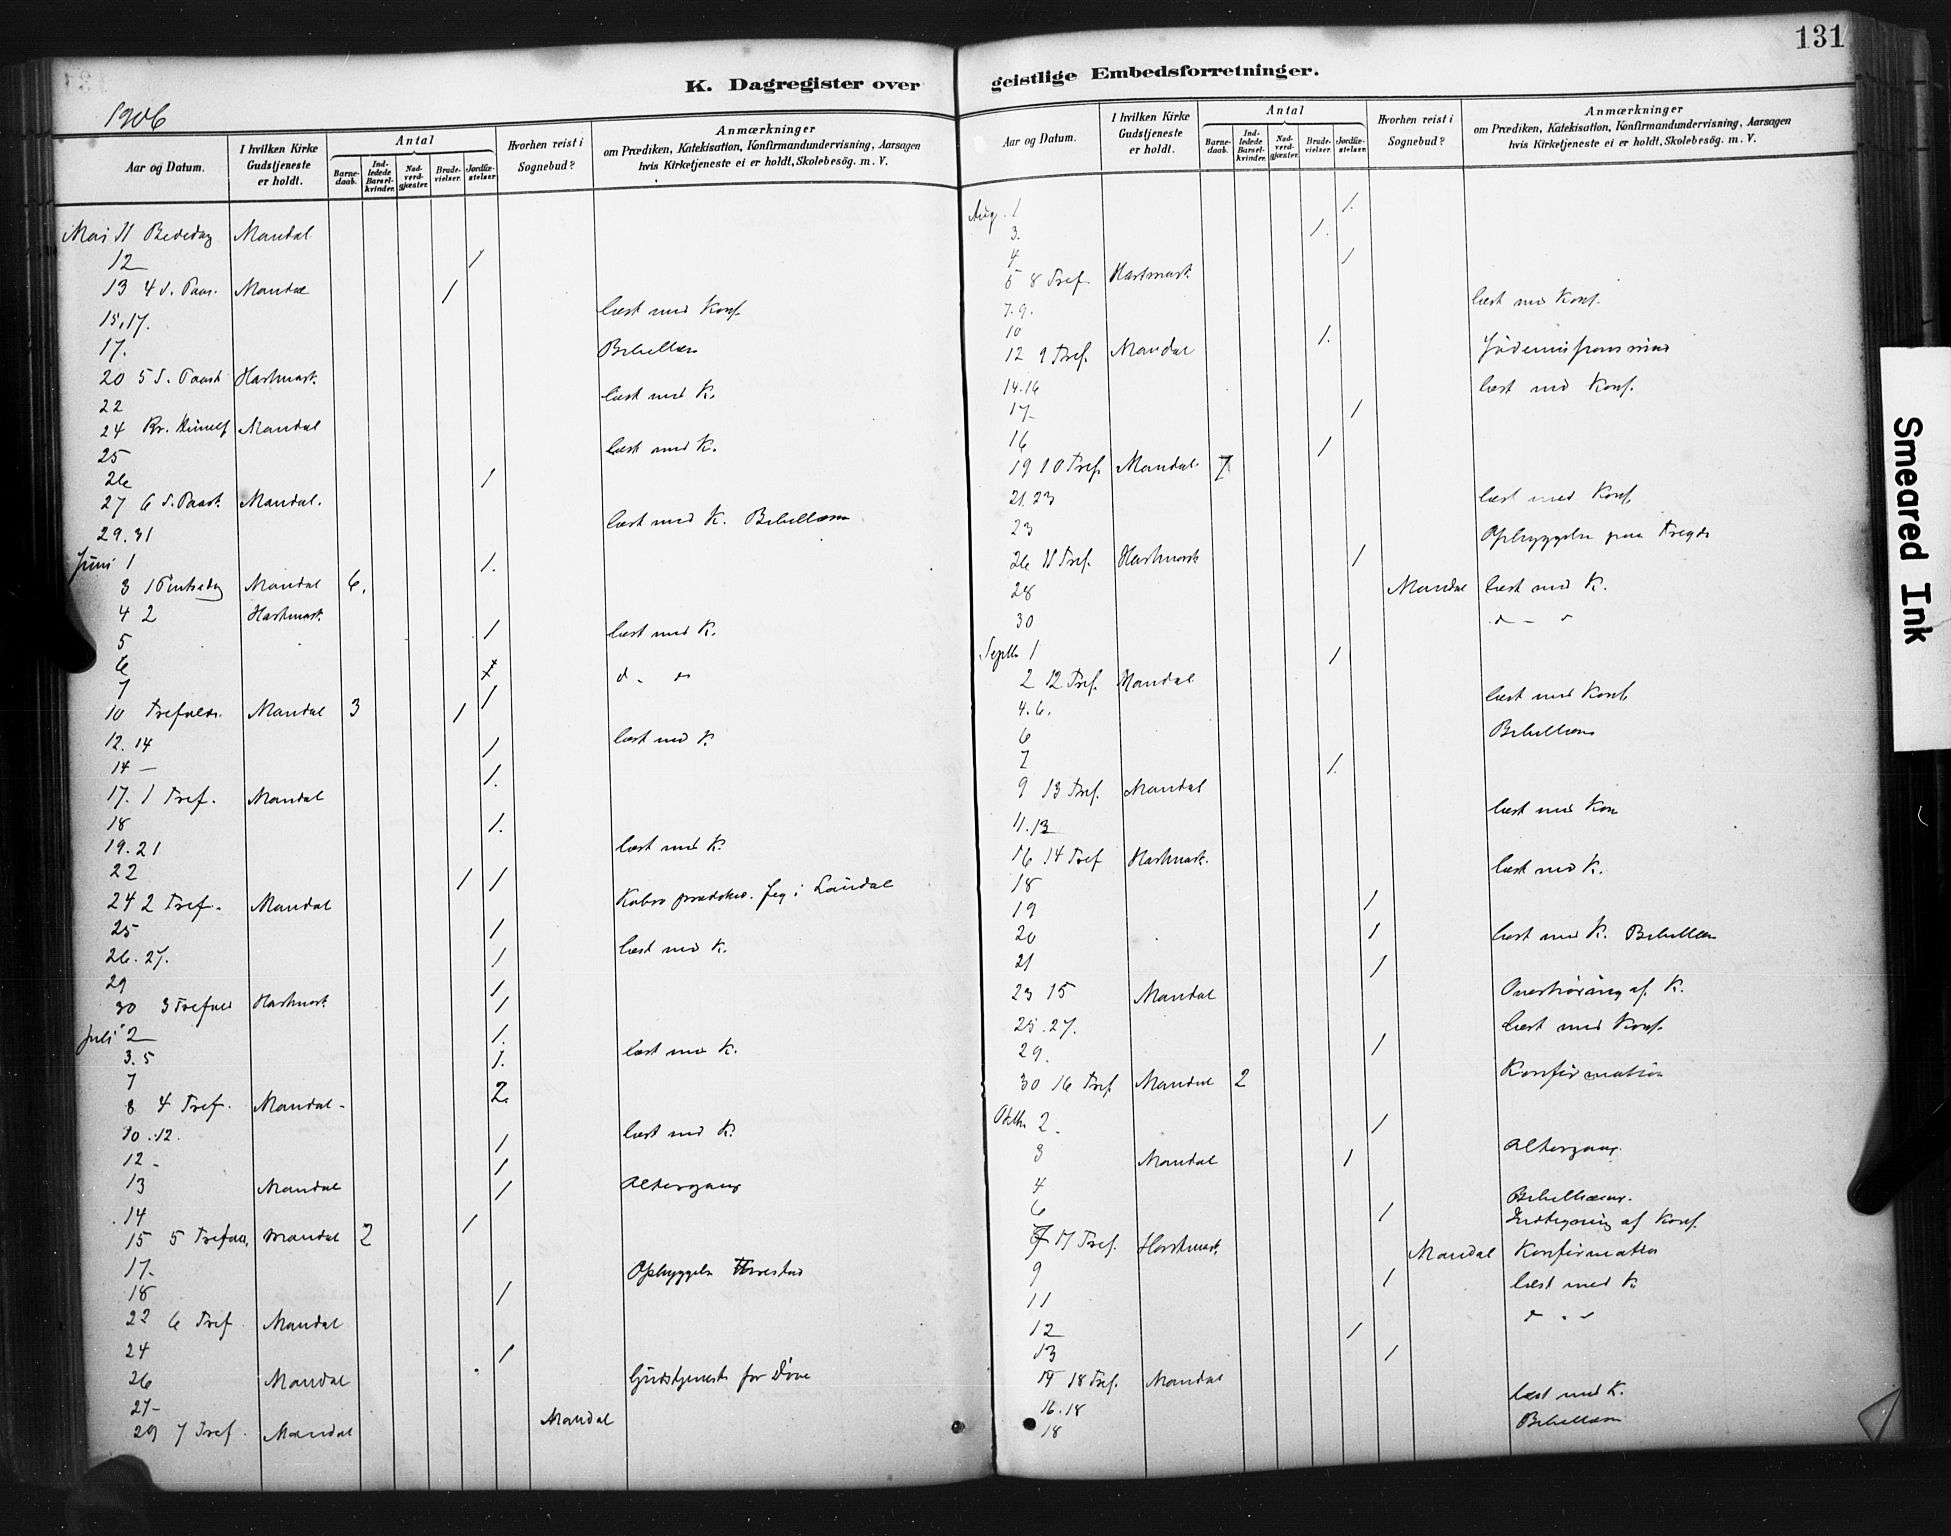 131
K. Dagregister over geistlige Embedsforretninger.
1906
Aar og Datum. I hvilken Kirke Gudstjeneste er holdt. Antal Barnedaab. Indledede Barselkvinder. Nadverdgjæster. Brudevielser. Jordfæstelser. Hvorhen reist i Sognebud? Anmærkninger om Prædiken, Katekisation, Konfirmandundervisning, Aarsagen hvis Kirketjeneste ei er holdt, Skolebesøg. m. V.
Mai 11 Bededag Mandal
12 1
13 4 S. Paas. Mandal 1
15.17. læst med Konf.
17. Bibellæsn
20 5 S. Paask Hartmark
22 læst med K.
24 Kr. Himmelf Mandal
25 læst med K.
26 1
27 6 S. Paask. Mandal.
29.31 læst med K. Bibellæsn
Juni 1 1.
3 1 Pintsedag Mandal 6.
4 2 Hartmark
5 1 læst med K.
6 d - o
7 1
10 Trefolds. Mandal 3 1
12.14 1 læst med K
14 – 1.
17. 1 Tref. Mandal
18 1.
19.21 læst med K.
22 1 1
24 2 Tref. Mandal prædiker. Jeg i Laudal
25 1
26.27. 1 læst med K.
29 1
30 3 Trefold Hartmark 1
Juli 2 1.
3.5 1. læst med K.
7 2.
8 4 Tref. Mandal.
10.12. 1 læst med K.
12. 1
13 Mandal 1 Altergang
14 1
15 5 Trefold. Mandal 2
17. Opbyggelse
18 1
22 6 Tref Mandal
24 1
26 Mandal Gudstjeneste for Døve
27- Mandal
29 7 Tref. Mandal
Aar og Datum. I hvilken Kirke Gudstjeneste er holdt. Antal Barnedaab. Indledede Barselkvinder. Nadverdgjæster. Brudevielser. Jordfæstelser. Hvorhen reist i Sognebud? Anmærkninger om Prædiken, Katekisation, Konfirmandundervisning, Aarsagen hvis Kirketjeneste ei er holdt, Skolebesøg. m. V.
Aug. 1 1.
3. 1.
4 1
5 8 Tref. Hartmark
7.9. læst med Konf.
10 1.
12 9 Tref. Mandal
14.16 læst med Konf.
17- 1
16 1
19 10 Tref. Mandal 7
21.23 læst med Konf.
23 Opbyggelse paa Tregde
26 11 Tref. Hartmark 1
28 Mandal læst med K.
30 d - o
Septbr 1 1
2 12 Tref. Mandal
4.6. læst med Konf.
6 Bibellæsn
7 1.
9 13 Tref. Mandal
11.13 læst med Kon
16 14 Tref Hartmark.
18 læst med K.
19 1
20 1 læst med K. Bibellæsn
21 1
23 15 Mandal Overhøring af K.
25.27. læst med Konf.
29. 1
30 16 Tref Mandal 2 Konfirmation
Oktbr 2. 1
3 Mandal 1 Altergang.
4 Bibellæsn.
6 1 Indtegning af Konf.
7 17 Tref. Hartmark. Mandal Konfirmation
9 1 læst med K.
11 d - o
12 1
13 1
14 18 Tref. Mandal
16.18 læst med K.
18 Bibellæsn
Smeared Ink